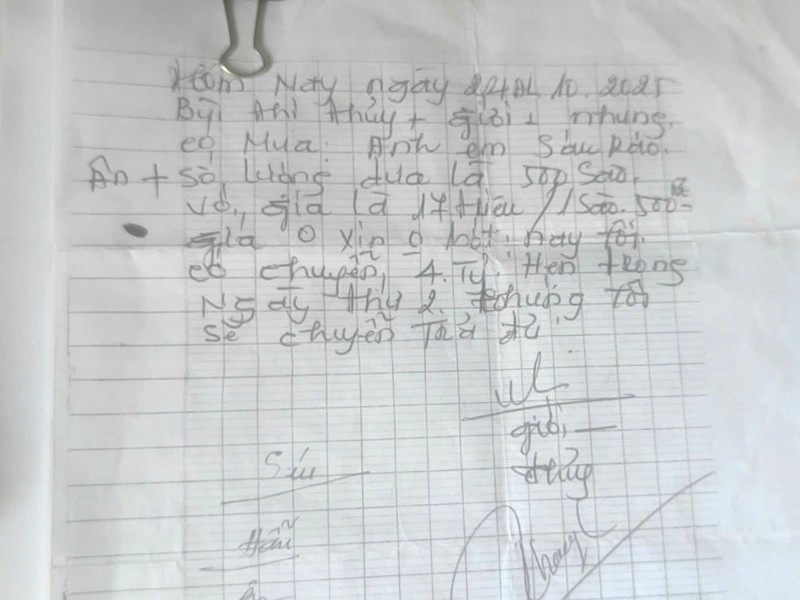 Hôm Nay ngày 2P+ĐL 10.2025
Bùi thị thủy + giỏi + nhung.
có Mua. Anh em Sáu Ráo.
Ân + Số lượng dưa là 500 Sào.
vớ., giá là 17 triệu /1 Sào. 500
giá 0 xin 0 hót. nay tôi.
có chuyển, 4. Tỷ. Hẹn trong
Ngày thứ 2. chúng tôi
sẽ chuyển Trả đủ.
giỏi
Sáu
thủy
Hẩu